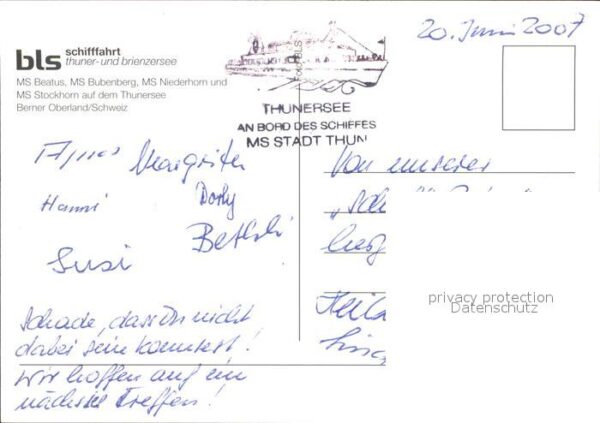 20. Juni 2007
bls schifffahrt
thuner- und brienzersee
MS Beatus, MS Bubenberg, MS Niederhorn und
MS Stockhorn auf dem Thunersee
Berner Oberland/Schweiz
Foto: BLS
THUNERSEE
AN BORD DES SCHIFFES
MS STADT THUN
Margrit
Hanni
Dorly
Bethli
Susi
Schade, dass Du nicht
dabei sein konntest!
Wir hoffen auf ein
nächstes Treffen!
Von unserer
privacy protection
Datenschutz